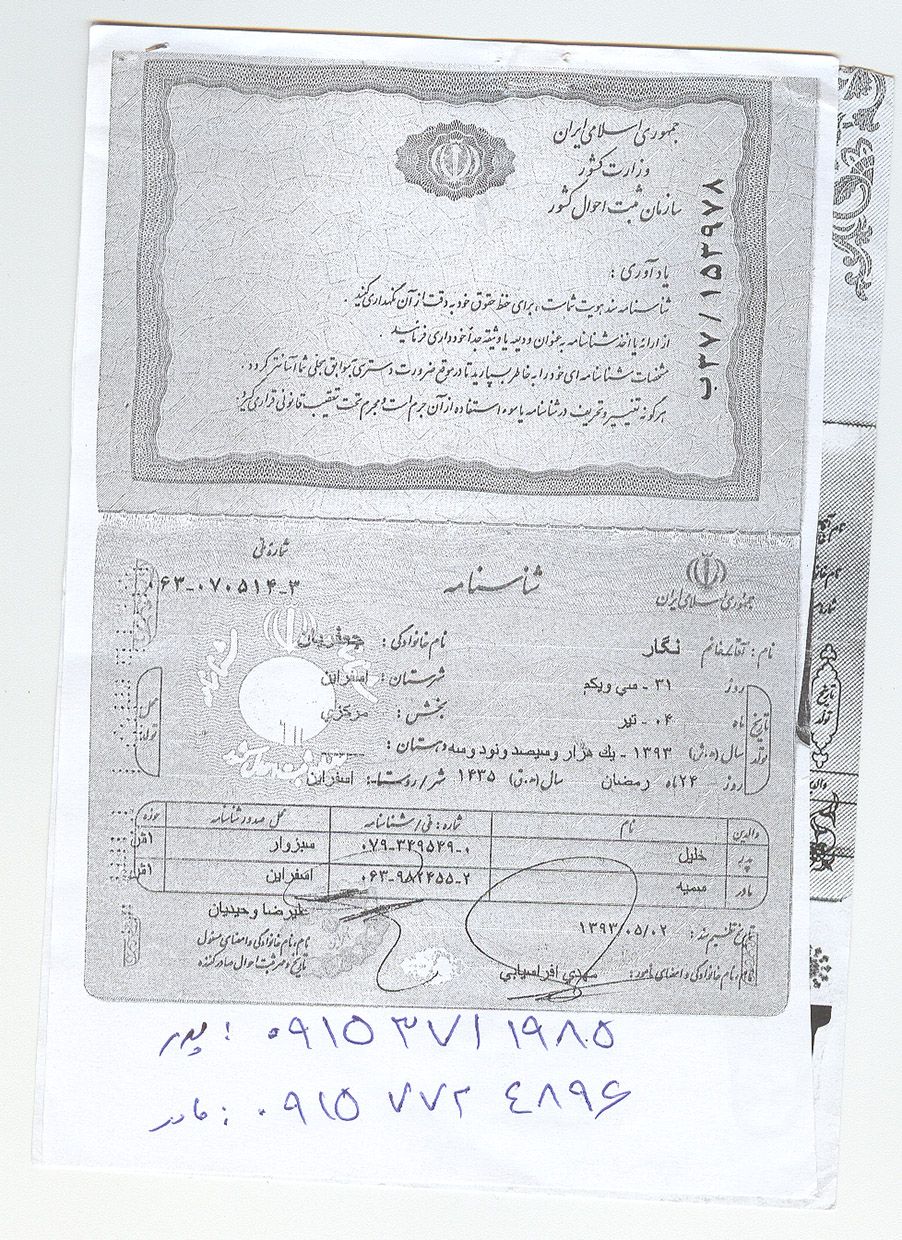 جمهوری اسلامی ایران
وزارت کشور
سازمان ثبت احوال کشور
ب۳۷/۱۵۳۹۷۸
یادآوری :
شناسنامه سند هویت شماست ، برای حفظ حقوق خود به دقت از آن نگهداری کنید .
از ارائه یا اخذ شناسنامه به عنوان ودیعه یا وثیقه جداً خودداری فرمائید .
مشخصات شناسنامه ای خود را به خاطر بسپارید تا در موقع ضرورت دسترسی به سوابق سجلی شما آسانتر گردد .
هرگونه تغییر و تحریف در شناسنامه یا سوء استفاده از آن جرم است و مجرم تحت تعقیب قانونی قرار می گیرد .
شماره ملی
۰۶۳-۰۷۰۵۱۴-۳
شناسنامه
جمهوری اسلامی ایران
نام : آقا/خانم نگار نام خانوادگی : جعفریان
تاریخ تولد
روز ۳۱ - سی ویکم شهرستان : اسفراین
ماه ۰۴ - تیر بخش : مرکزی
سال (ه.ش) ۱۳۹۳ - یك هزار وسیصد ونود وسه دهستان : ----
روز ۲۴ ماه رمضان سال (ه.ق) ۱۴۳۵ شهر/روستا : اسفراین
محل تولد
والدین نام شماره : ملی/شناسنامه محل صدور شناسنامه حوزه
پدر خلیل ۰۷۹-۳۴۹۵۴۹-۰ سبزوار
مادر سمیه ۰۶۳-۹۸۲۴۵۵-۲ اسفراین
تاریخ تنظیم سند : ۱۳۹۳/۰۵/۰۲
علیرضا وحیدیان
نام، نام خانوادگی و امضای مسئول
تاریخ و مهر ثبت احوال صادرکننده
نام، نام خانوادگی و امضای مأمور : مهدی افراسیابی
پدر : ۰۹۱۵ ۳۷۱ ۱۹۸۵
مادر : ۰۹۱۵ ۷۷۲ ۴۸۹۶